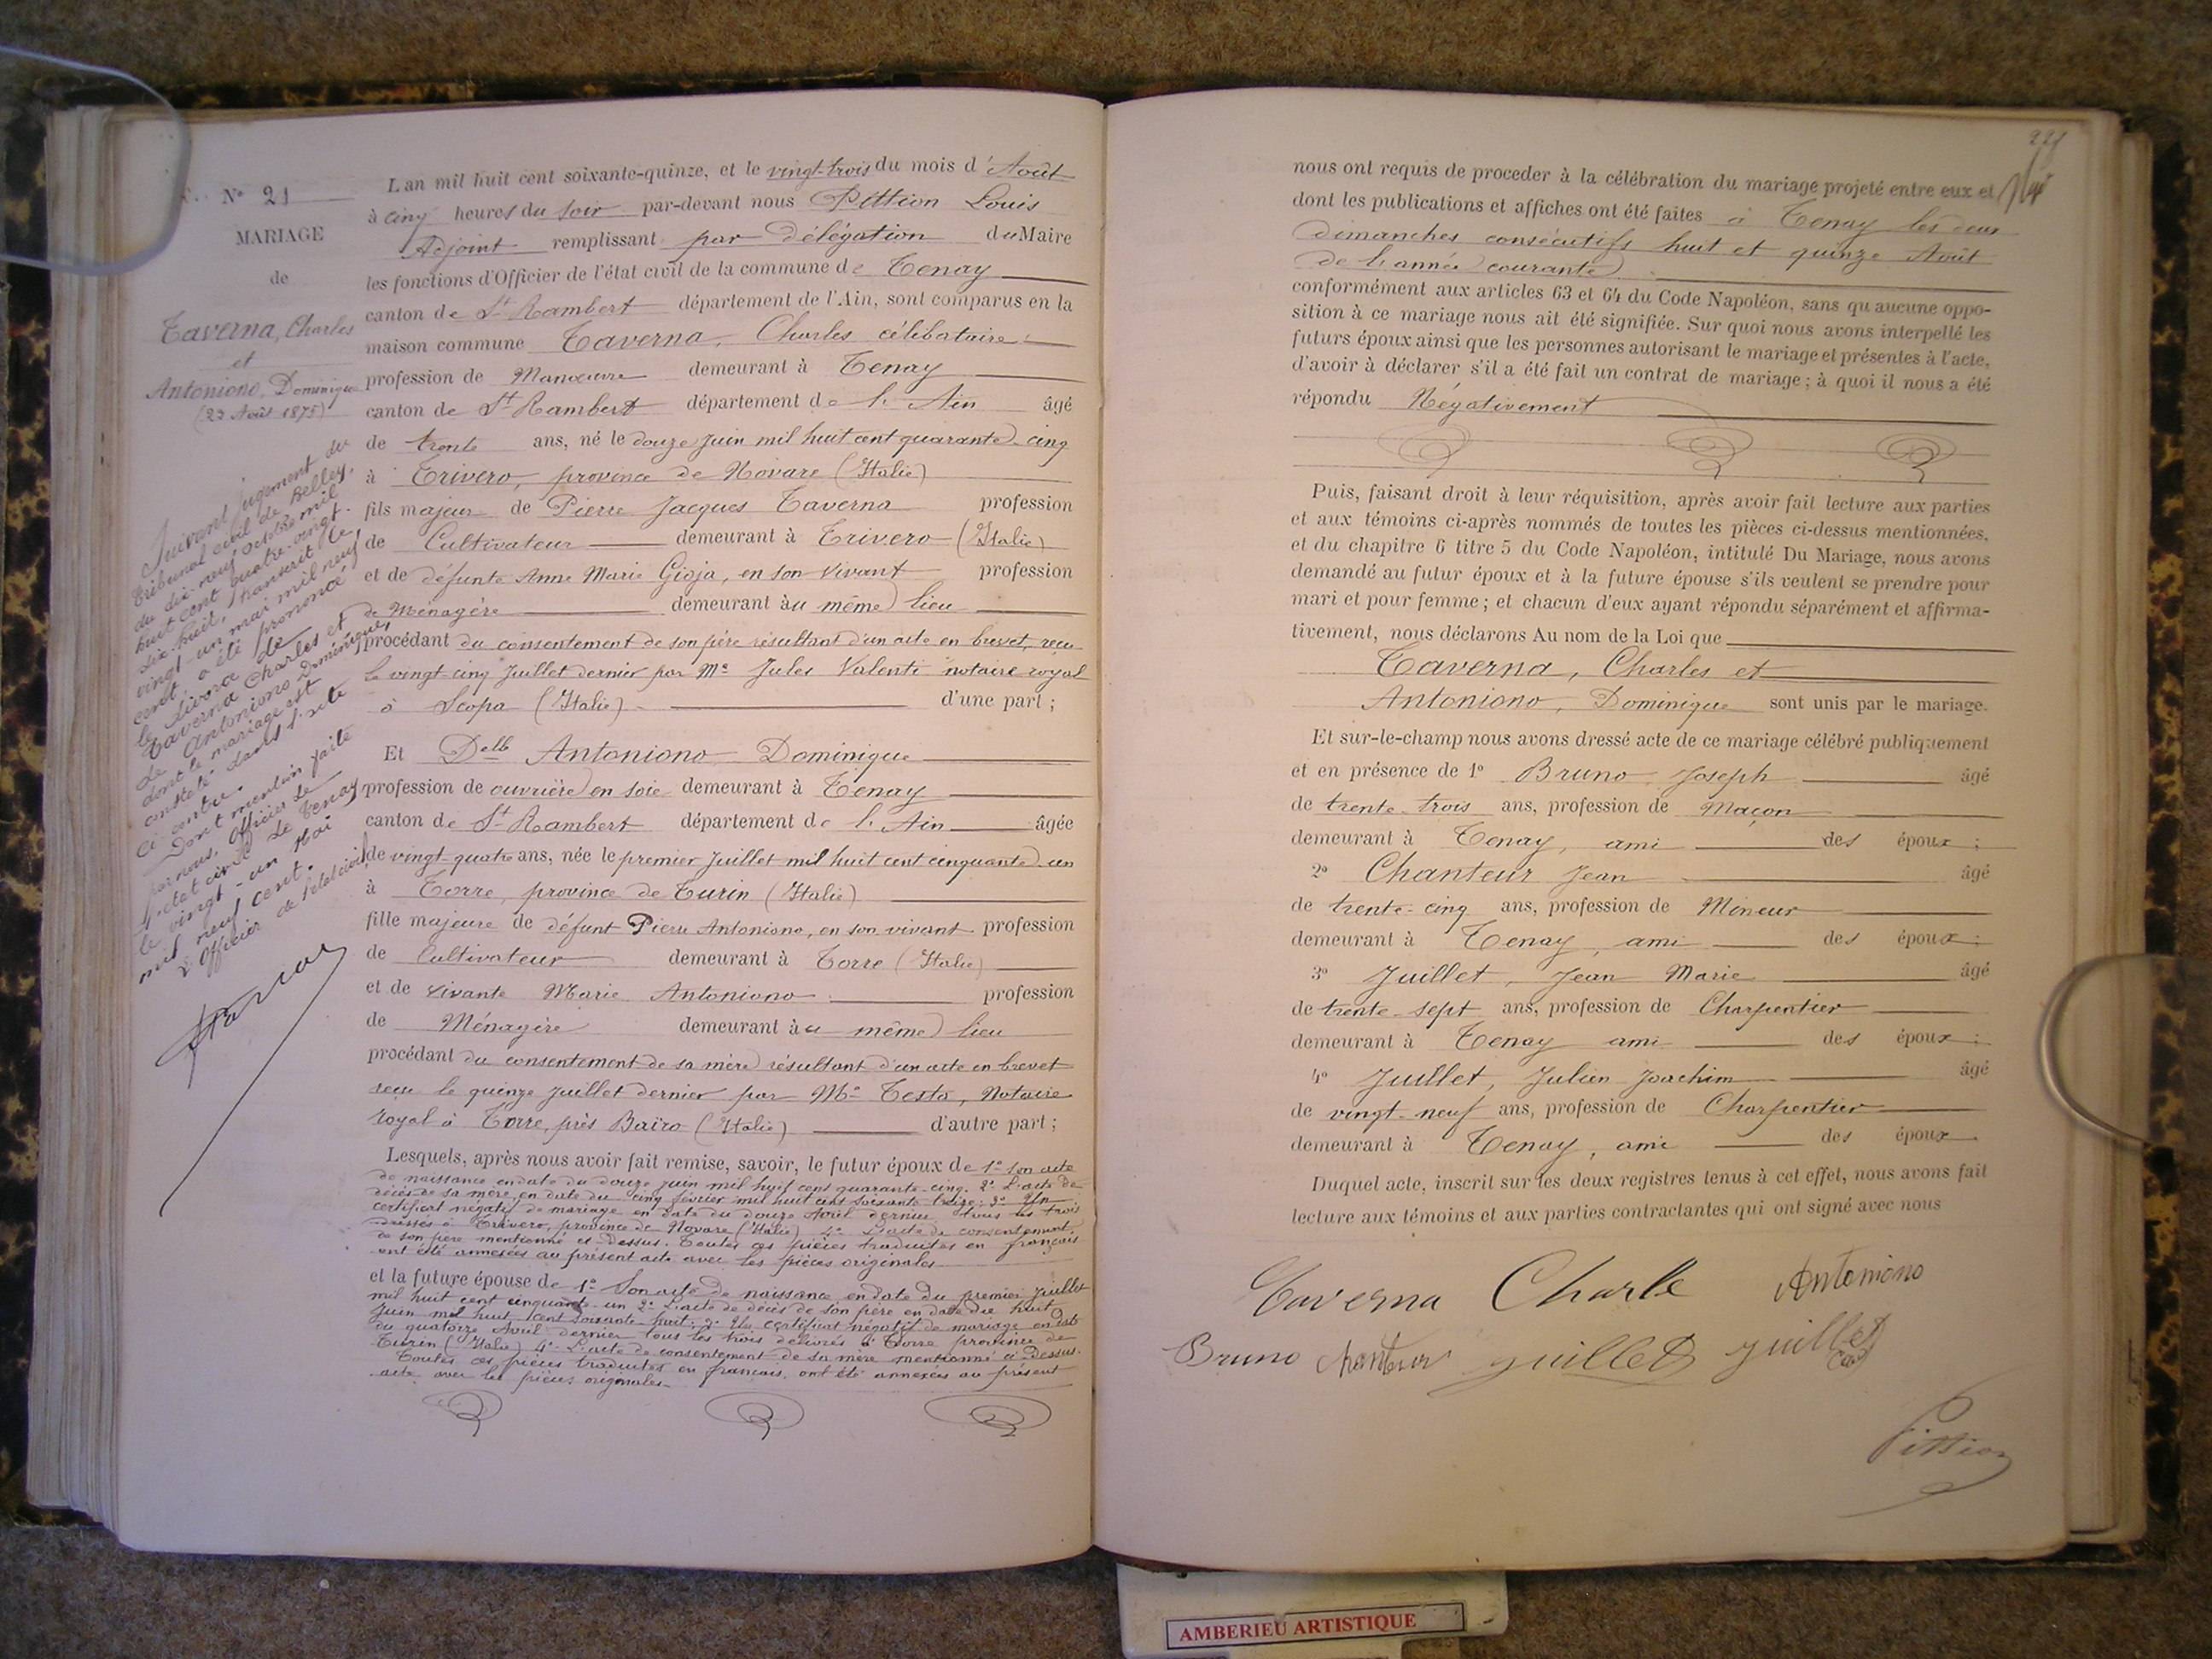 N° 21
MARIAGE
de
Taverna, Charles
et
Antoniono, Dominique
(23 Août 1875)
Suivant jugement du
tribunal civil de Belley,
du dix-neuf octobre mil
huit cent quatre-vingt-
dix-huit, transcrit le
vingt-un mai mil neuf
cent, a été prononcé
le divorce de
Taverna Charles et
de Antoniono Dominique,
dont le mariage est
constaté dans l'acte
ci contre.
Dont mention faite
par nous, Officier de
l'état civil de Tenay
le vingt-un Mai
mil neuf cent.
L'Officier de l'état civil
L'an mil huit cent soixante-quinze, et le vingt-trois du mois d'Août
à cinq heures du soir par-devant nous Pittion Louis
Adjoint remplissant par délégation du Maire
les fonctions d'Officier de l'état civil de la commune de Tenay
canton de St Rambert département de l'Ain, sont comparus en la
maison commune Taverna, Charles célibataire
profession de Manœuvre demeurant à Tenay
canton de St Rambert département de l'Ain âgé
de trente ans, né le douze Juin mil huit cent quarante-cinq
à Trivero, province de Novare (Italie)
fils majeur de Pierre Jacques Taverna profession
de Cultivateur demeurant à Trivero (Italie)
et de défunte Anne Marie Gioja, en son vivant profession
de Ménagère demeurant au même lieu
procédant du consentement de son père résultant d'un acte en brevet, reçu
le vingt cinq Juillet dernier par Me Jules Valenti notaire royal
à Scopa (Italie) d'une part ;
Et Delle Antoniono Dominique
profession de ouvrière en soie demeurant à Tenay
canton de St Rambert département de l'Ain âgée
de vingt-quatre ans, née le premier Juillet mil huit cent cinquante-un
à Torre, province de Turin (Italie)
fille majeure de défunt Pierre Antoniono, en son vivant profession
de Cultivateur demeurant à Torre (Italie)
et de vivante Marie Antoniono profession
de Ménagère demeurant au même lieu
procédant du consentement de sa mère résultant d'un acte en brevet
reçu le quinze Juillet dernier par Me Testa, Notaire
royal à Torre, près Baïro (Italie) d'autre part ;
Lesquels, après nous avoir fait remise, savoir, le futur époux de 1° son acte
de naissance en date du douze juin mil huit cent quarante-cinq. 2° L'acte de
décès de sa mère, en date du cinq février mil huit cent soixante treize: 3° Un
certificat négatif de mariage en date du douze Avril dernier tous les trois
dressés à Trivero, province de Novare (Italie) 4° L'acte de consentement
de son père mentionné ci-dessus. Toutes ces pièces traduites en français
ont été annexées au présent acte avec les pièces originales
et la future épouse de 1° Son acte de naissance en date du premier Juillet
mil huit cent cinquante-un 2° L'acte de décès de son père en date du huit
Juin mil huit cent soixante-huit: 3° Un certificat négatif de mariage en date
du quatorze Avril dernier tous les trois délivrés à Torre province de
Turin (Italie) 4° L'acte de consentement de sa mère mentionné ci-dessus.
Toutes ces pièces traduites en français, ont été annexées au présent
acte avec les pièces originales
221
nous ont requis de proceder à la célébration du mariage projeté entre eux et
dont les publications et affiches ont été faites à Tenay les deux
Dimanches consécutifs huit et quinze Août
de l'année courante
conformément aux articles 63 et 64 du Code Napoléon, sans qu'aucune oppo-
sition à ce mariage nous ait été signifiée. Sur quoi nous avons interpellé les
futurs époux ainsi que les personnes autorisant le mariage et présentes à l'acte,
d'avoir à déclarer s'il a été fait un contrat de mariage ; à quoi il nous a été
répondu Négativement
Puis, faisant droit à leur réquisition, après avoir fait lecture aux parties
et aux témoins ci-après nommés de toutes les pièces ci-dessus mentionnées,
et du chapitre 6 titre 5 du Code Napoléon, intitulé Du Mariage, nous avons
demandé au futur époux et à la future épouse s'ils veulent se prendre pour
mari et pour femme ; et chacun d'eux ayant répondu séparément et affirma-
tivement, nous déclarons Au nom de la Loi que
Taverna, Charles et
Antoniono, Dominique sont unis par le mariage.
Et sur-le-champ nous avons dressé acte de ce mariage célébré publiquement
et en présence de 1° Bruno Joseph âgé
de trente-trois ans, profession de Maçon
demeurant à Tenay, ami des époux ;
2° Chanteur Jean âgé
de trente-cinq ans, profession de Mineur
demeurant à Tenay, ami des époux ;
3° Juillet, Jean Marie âgé
de trente-sept ans, profession de Charpentier
demeurant à Tenay ami des époux ;
4° Juillet, Julien Joachim âgé
de vingt-neuf ans, profession de Charpentier
demeurant à Tenay, ami des époux
Duquel acte, inscrit sur les deux registres tenus à cet effet, nous avons fait
lecture aux témoins et aux parties contractantes qui ont signé avec nous
Taverna Charle Antoniono
Bruno chanteur juillet juillet
Pittion
AMBERIEU ARTISTIQUE